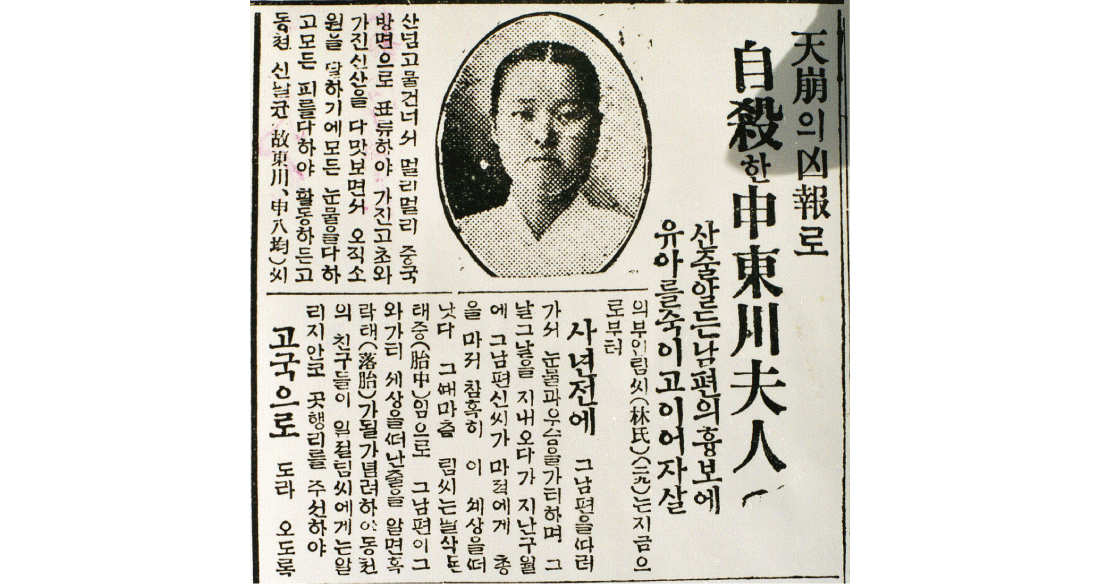 天崩의 凶報로
自殺한 申東川夫人
산줄알든남편의흉보에
유아를죽이고이어자살
산넘고물건너서 멀리멀리 중국
방면으로 표류하야 가진고초와
가진신산을 다맛보면서 오직소
원을 달하기에모든 눈물을다하
고모든 피를다하야 활동하든고
동천 신팔균(故東川、申八均)씨
의부인림씨(林氏)(二九)는지금으
로부터
사년전에 그남편을따러
가서 눈물과우슴을가티하며 그
날그날을 지내오다가 지난구월
에 그남편신씨가 마적에게 총
을 마저 참혹히 이 세상을떠
낫다 그때마츰 림씨는만삭된
태중(胎中)임으로 그남편이그
와가티 세상을떠난줄을 알면혹
락태(落胎)가될가념려하야동천
의 친구들이 일절림씨에게는알
리지안코 곳행리를 주선하야
고국으로 도라 오도록